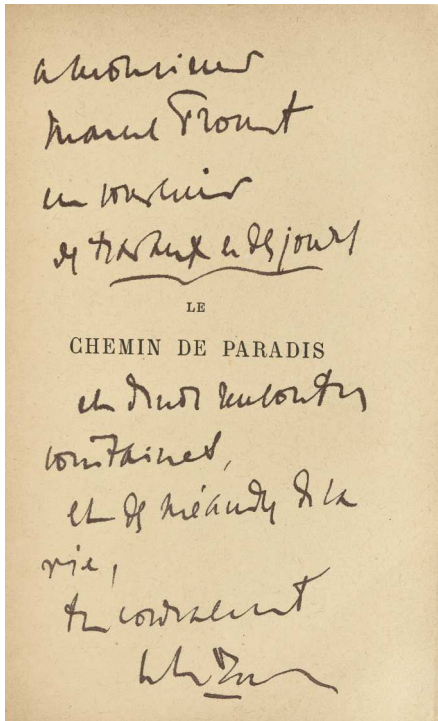 a Monsieur
Marcel Proust
en souvenir
des travaux et des jours
LE
CHEMIN DE PARADIS
et de nos rencontres
lointaines,
et des méandres de la
vie,
très cordialement